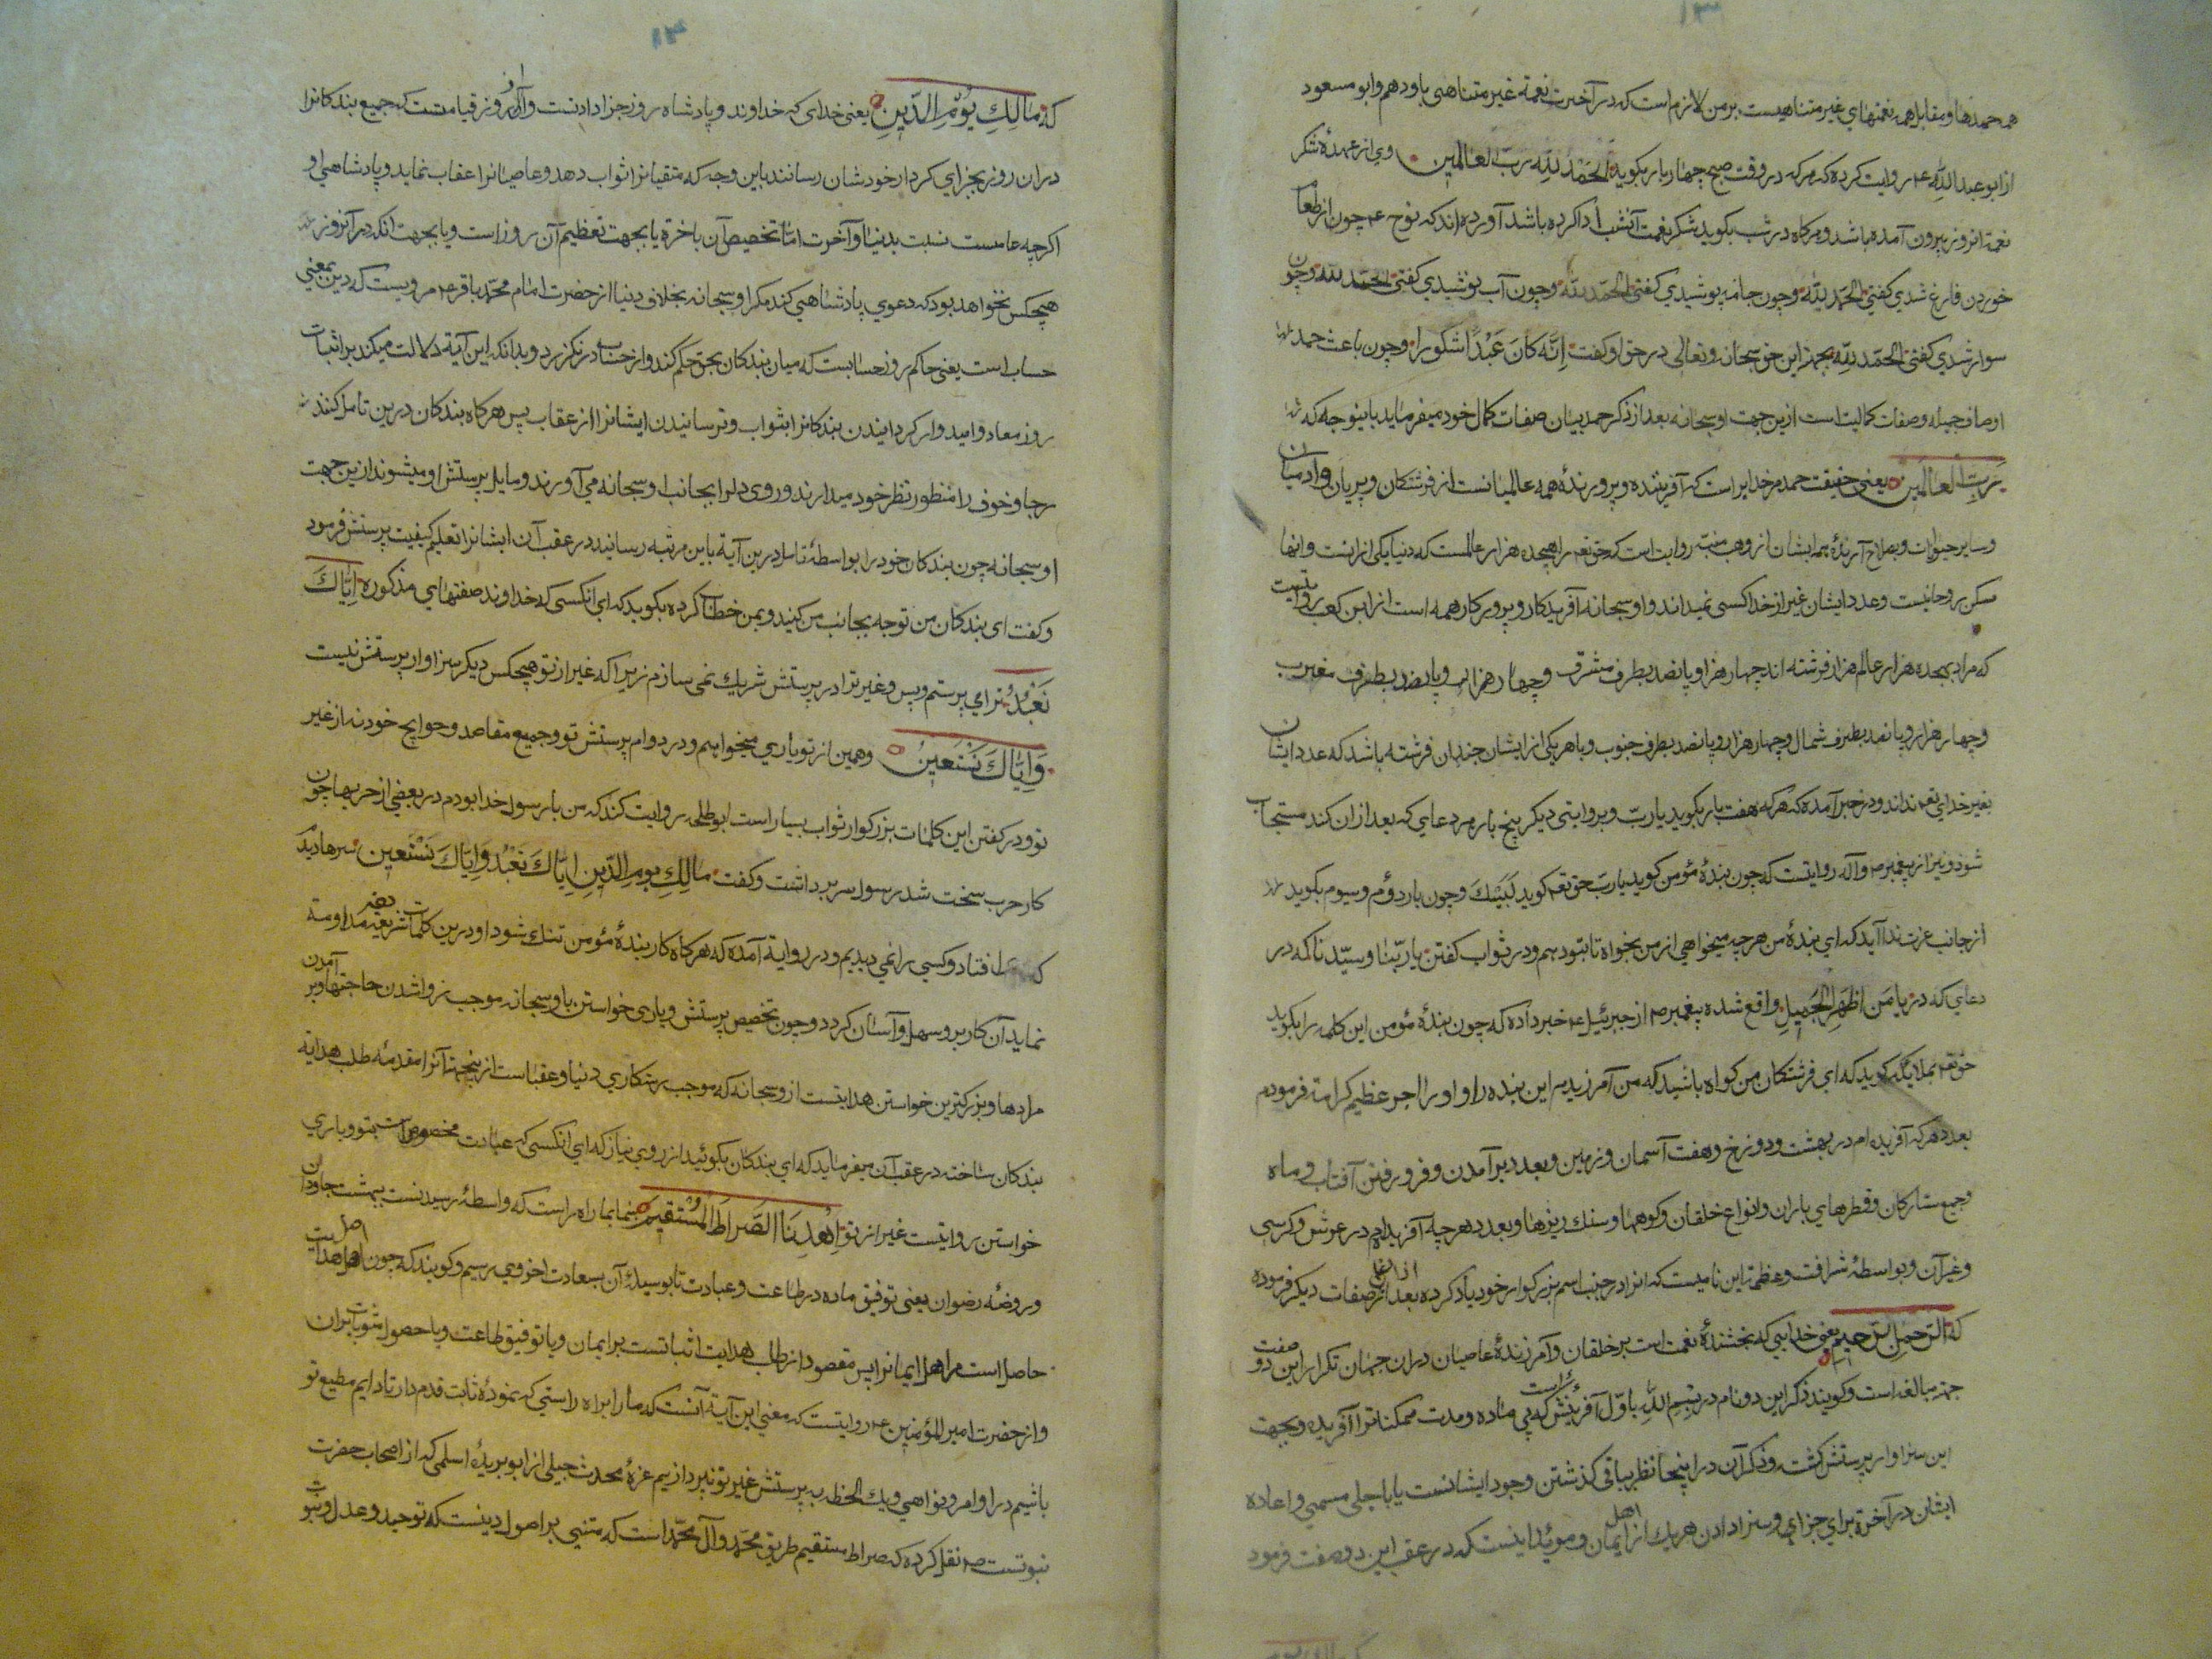 ۱۳
همه حمدها و مقابل همه نعمتهای غیر متناهیست بر من لازم است که در آخرت نعمة غیر متناهی باو دهم و ابو مسعود
از ابو عبدالله ع روایت کرده که هر که در وقت صبح چهار بار بکوید الحَمْدُ لِلّهِ رَبِّ العٰالَمین وی از عهدهٔ شکر
نعمة انروز بیرون آمده باشد و هرکاه در شب بکوید شکر نعمت آنشب ادا کرده باشد آورده اند که نوح ع چون از طعام
خوردن فارغ شدی کفتی الحمد لله و چون جامه پوشیدی کفتی الحمد لله و چون آب نوشیدی کفتی الحمد لله و چون
سوار شدی کفتی الحمد لله بجهة این حق سبحانه و تعالی در حق او کفت اِنَّه کانَ عَبْدًا شکورا و چون باعث حمد
اوصاف جمیله و صفات کمالیت است ازین جهت او سبحانه بعد از ذکر حمد بیان صفات کمال خود میفرماید باینوجه که
رَبِّ العٰالَمین یعنی حقیقت حمد مر خدایراست که آفریننده و پرورندهٔ همه عالمیانست از فرشتکان و پریان و آدمیان
و سایر حیوانات و بصلاح آرندهٔ همه ایشان از وهب منبه روایت است که حق تع را هیجده هزار عالمست که دنیا یکی از انست و انها
مسکن روحانیست و عدد ایشان غیر از خدا کسی نمیداند و او سبحانه آفریدکار و پروردکار همه است از ابن کعب روایتست
که مراد بهیجده هزار عالم هزار فرشته اند چهار هزار و پانصد بطرف مشرق و چهار هزار و پانصد بطرف مغرب
و چهار هزار و پانصد بطرف شمال و چهار هزار و پانصد بطرف جنوب و با هر یکی از ایشان چندان فرشته باشد که عدد ایشان
بغیر خدای تع نداند و در خبر آمده که هر که هفت بار بکوید یا ربّ و بروایتی دیکر پنج بار هر دعای که بعد ازان کند مستجاب
شود و نیز از پیغمبر ص و آله روایتست که چون بندهٔ مؤمن کوید یا رب حق تع کوید لبّیک و چون بار دوّم و سیوم بکوید
از جانب عزت ندا آید که ای بندهٔ من هر چه میخواهی از من بخواه تا بتو دهم و در ثواب کفتن یا ربّنا و سیّدنا که در
دعای که در یا مَن اظهر الجمیل واقع شده پیغمبر ص از جبرئیل ع خبر داده که چون بندهٔ مؤمن این کلمه را بکوید
حق تع بملایکه کوید که ای فرشتکان من کواه باشید که من آمرزیدم این بنده را و او را اجر عظیم کرامة فرمودم
بعدد هر که آفریده ام در بهشت و دوزخ و هفت آسمان و زمین و بعدد برآمدن و فرو رفتن آفتاب و ماه
و جمیع ستارکان و قطرهای باران و انواع خلقان و کوهها و سنک ریزها و بعدد هر چه آفریده ام در عرش و کرسی
و غیر آن و بواسطهٔ شرافت و عظمت این نامیست که انرا در جنب اسم بزرکوار خود یاد کرده بعد از ان صفات دیکر فرموده
که الرّحمٰنِ الرّحیم یعنی خدایی که بخشندهٔ نعمت است بر خلقان و آمرزندهٔ عاصیان دران جهان تکرار این دو صفت
جهة مبالغه است و کویند ذکر این دو نام در بسم الله باوّل آفرینش است که بی ماده و مدت ممکنات را آفریده و بجهت
این سزاوار پرستش کشته و ذکر آن در اینجا نظر بباقی کذشتن وجود ایشانست یا باجلی مسمی و اعاده
ایشان در آخرة برای جزای و سزا دادن هر یک از اهل ایمان و مویّد اینست که در عقب این دو صفت فرمود
۱۴
که مٰالِکِ یَوْمِ الدّینِ یعنی خدای که خداوند و پادشاه روز جزا دادنست و آن روز قیامتست که جمیع بندکانرا
دران روز بجزای کردار خودشان رسانند باین وجه که متقیانرا ثواب دهد و عاصیانرا عقاب نماید و پادشاهی او
اکرچه عامست نسبت بدنیا و آخرت امّا تخصیص آن باخرة یا بجهت تعظیم آن روز است و یا بجهت انکه در آنروز
هیچکس نخواهد بود که دعوی پادشاهی کند مکر او سبحانه بخلاف دنیا از حضرت امام محمّد باقر ع مرویست که دین بمعنی
حساب است یعنی حاکم روز حسابست که میان بندکان بحق حکم کند و از حساب درنکزرد و بدانکه این آیة دلالت میکند بر اثبات
روز معاد و امیدوار کردایندن بندکانرا بثواب و ترسانیدن ایشانرا از عقاب پس هرکاه بندکان درین تامل کنند
رجا و خوف را منظور نظر خود میدارند و روی دلرا بجانب او سبحانه می آورند و مایل پرستش او میشوند ازین جهت
او سبحانه چون بندکان خود را بواسطهٔ تامل درین آیة باین مرتبه رسانید در عقب آن ایشانرا تعلیم کیفیت پرستش فرمود
و کفت ای بندکان من توجه بجانب من کنید و بمن خطاب کرده بکوید که ای انکسی که خداوند صفتهای مذکوره اِیّٰاکَ
نَعْبُدُ ترا می پرستم و بس و غیر ترا در پرستش شریک نمی سازم زیرا که غیر از تو هیچکس دیکر سزاوار پرستش نیست
وَاِیّٰاکَ نَسْتَعینُ و همین از تو یاری میخواهم و در دوام پرستش تو و جمیع مقاصد و حوایج خود نه از غیر
تو و در کفتن این کلمات بزرکوار ثواب بسیار است ابو طلحه روایت کند که من با رسول خدا بودم در بعضی از حربها چون
کار حرب سخت شد رسول سر برداشت و کفت مٰالِکِ یومِ الدّینِ اِیّٰاکَ نَعْبُدُ وَاِیّٰاکَ نَسْتَعین سرها دیدم
که افتاد و کسی را نمی دیدیم و در روایة آمده که هرکاه کار بندهٔ مؤمن تنک شود او درین کلمات شریفه مداومة
نماید آن کار برو سهل و آسان کردد و چون تخصیص پرستش و یاری خواستن باو سبحانه موجب روا شدن حاجتها و بر آمدن
مرادها و بزرکترین خواستن هدایتست ازو سبحانه که موجب رستکاری دنیا و عقباست ازینجهة آنرا مقدمهٔ طلب هدایة
بندکان ساخته در عقب آن میفرماید که ای بندکان بکوئید از روی نیاز که ای انکسی که عبادت مخصوص است بتو و یاری
خواستن روا نیست غیر از تو اِهْدِنَا الصِّراطَ المُسْتَقیمَ بنما بما راه راست که واسطهٔ رسیدنست ببهشت جاودان
و روضهٔ رضوان یعنی توفیق ما ده در طاعت و عبادت تا بوسیلهٔ آن بسعادت اخروی رسیم و کویند که چون اصل هدایت
حاصل است مر اهل ایمانرا پس مقصود از طلب هدایت اثباتست بر ایمان و یا توفیق طاعت و یا حصول مثوبات بران
و از حضرت امیر المؤمنین ع روایتست که معنی این آیة آنست که ما را براه راستی که نمودهٔ ثابت قدم دار تا دایم مطیع تو
باشیم در اوامر و نواهی و یک لحظه به پرستش غیر تو نپردازیم محدث جبلی از ابو بریده اسلمی که از اصحاب حضرت
نبوتست ص نقل کرده که صراط مستقیم طریق محمّد و آل محمّد است که مبتنی بر اصول دینست که توحید و عدل و نبوّ